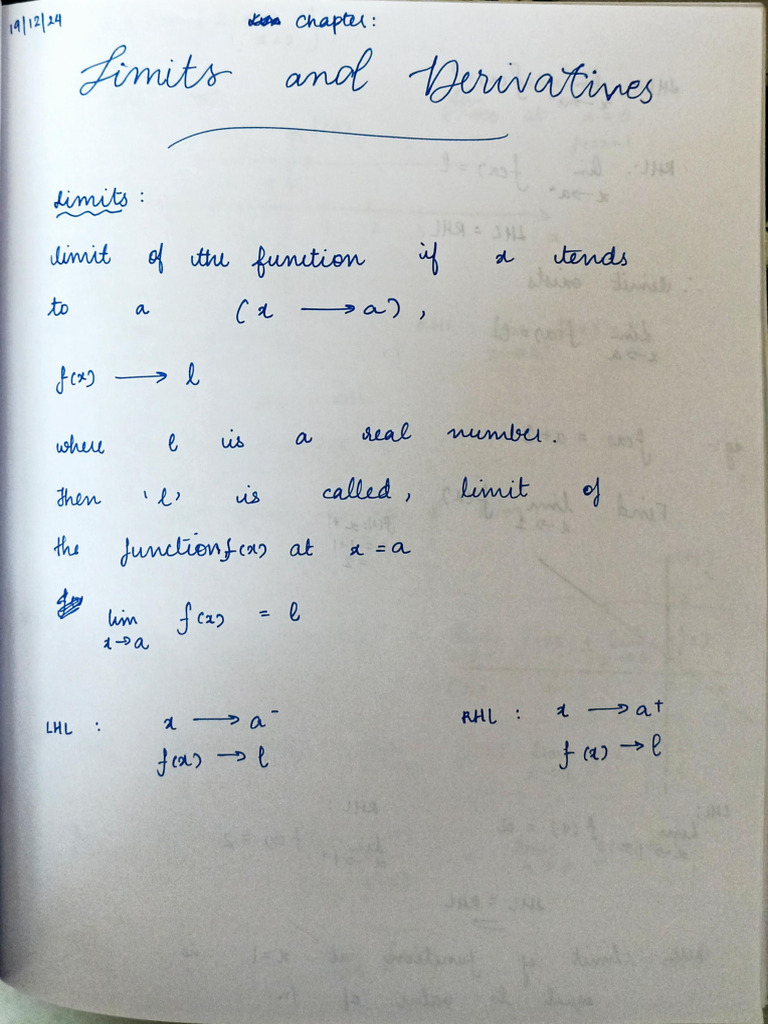 19/12/24
chapter:
Limits and Derivatives
Limits:
Limit of the function if x tends
to a (x ⟶ a),
f(x) ⟶ l
where l is a real number.
Then 'l' is called, limit of
the function, f(x) at x = a
lim f(x) = l
x→a
LHL : x ⟶ a⁻ RHL : x ⟶ a⁺
f(x) → l f(x) → l